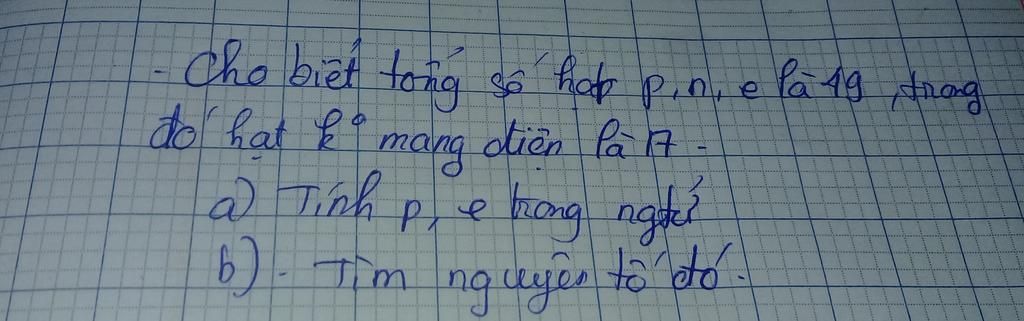 - Cho biết tổng số hạt p, n, e là 49, trong
đó hạt k° mang điện là 17.
a) Tính p, e trong ngtử
b). Tìm nguyên tố đó.